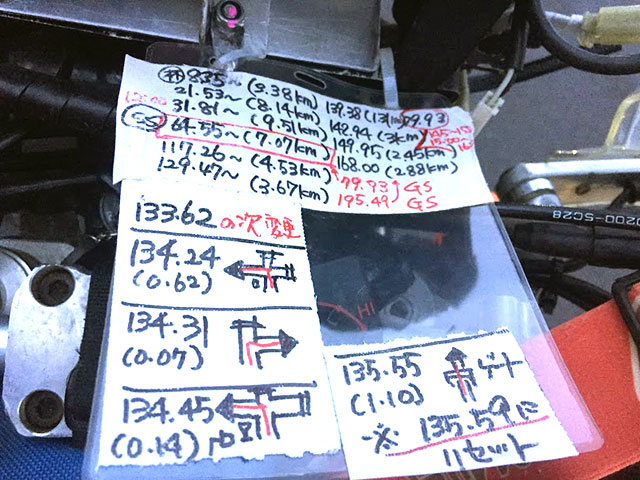 ㊍ 8.35~ (3.38km)
21.53~ (8.14km)
31.81~ (9.51km)
GS 64.55~ (7.07km)
117.26~ (4.53km)
129.47~ (3.67km)
139.38
148.94 (3km)
149.95 (2.45km)
168.00 (2.88km)
79.93 GS
195.49 GS
133.62の次変更
134.24
(0.62)
134.31
(0.07)
134.45
(0.14)
135.55
(1.10)
ゲート
※ 135.59に
11セット
HI
0200-SC28